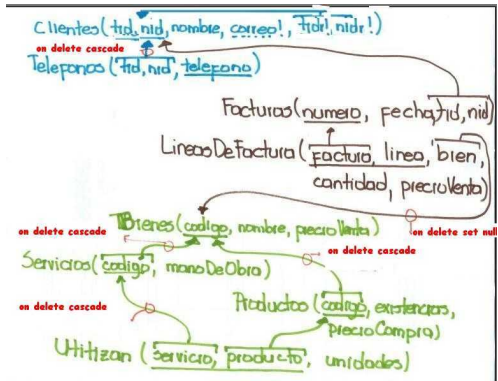 Clientes(tid, nid, nombre, correo!, tidr!, nidr!)
on delete cascade
Telefonos(tid, nid, telefono)
Facturas(numero, fecha, tid, nid)
LineasDeFactura(factura, linea, bien,
cantidad, precioVenta)
on delete cascade
Bienes(codigo, nombre, precioVenta)
on delete set null
on delete cascade
Servicios(codigo, manoDeObra)
on delete cascade
Productos(codigo, existencias,
precioCompra)
Utilizan(servicio, producto, unidades)